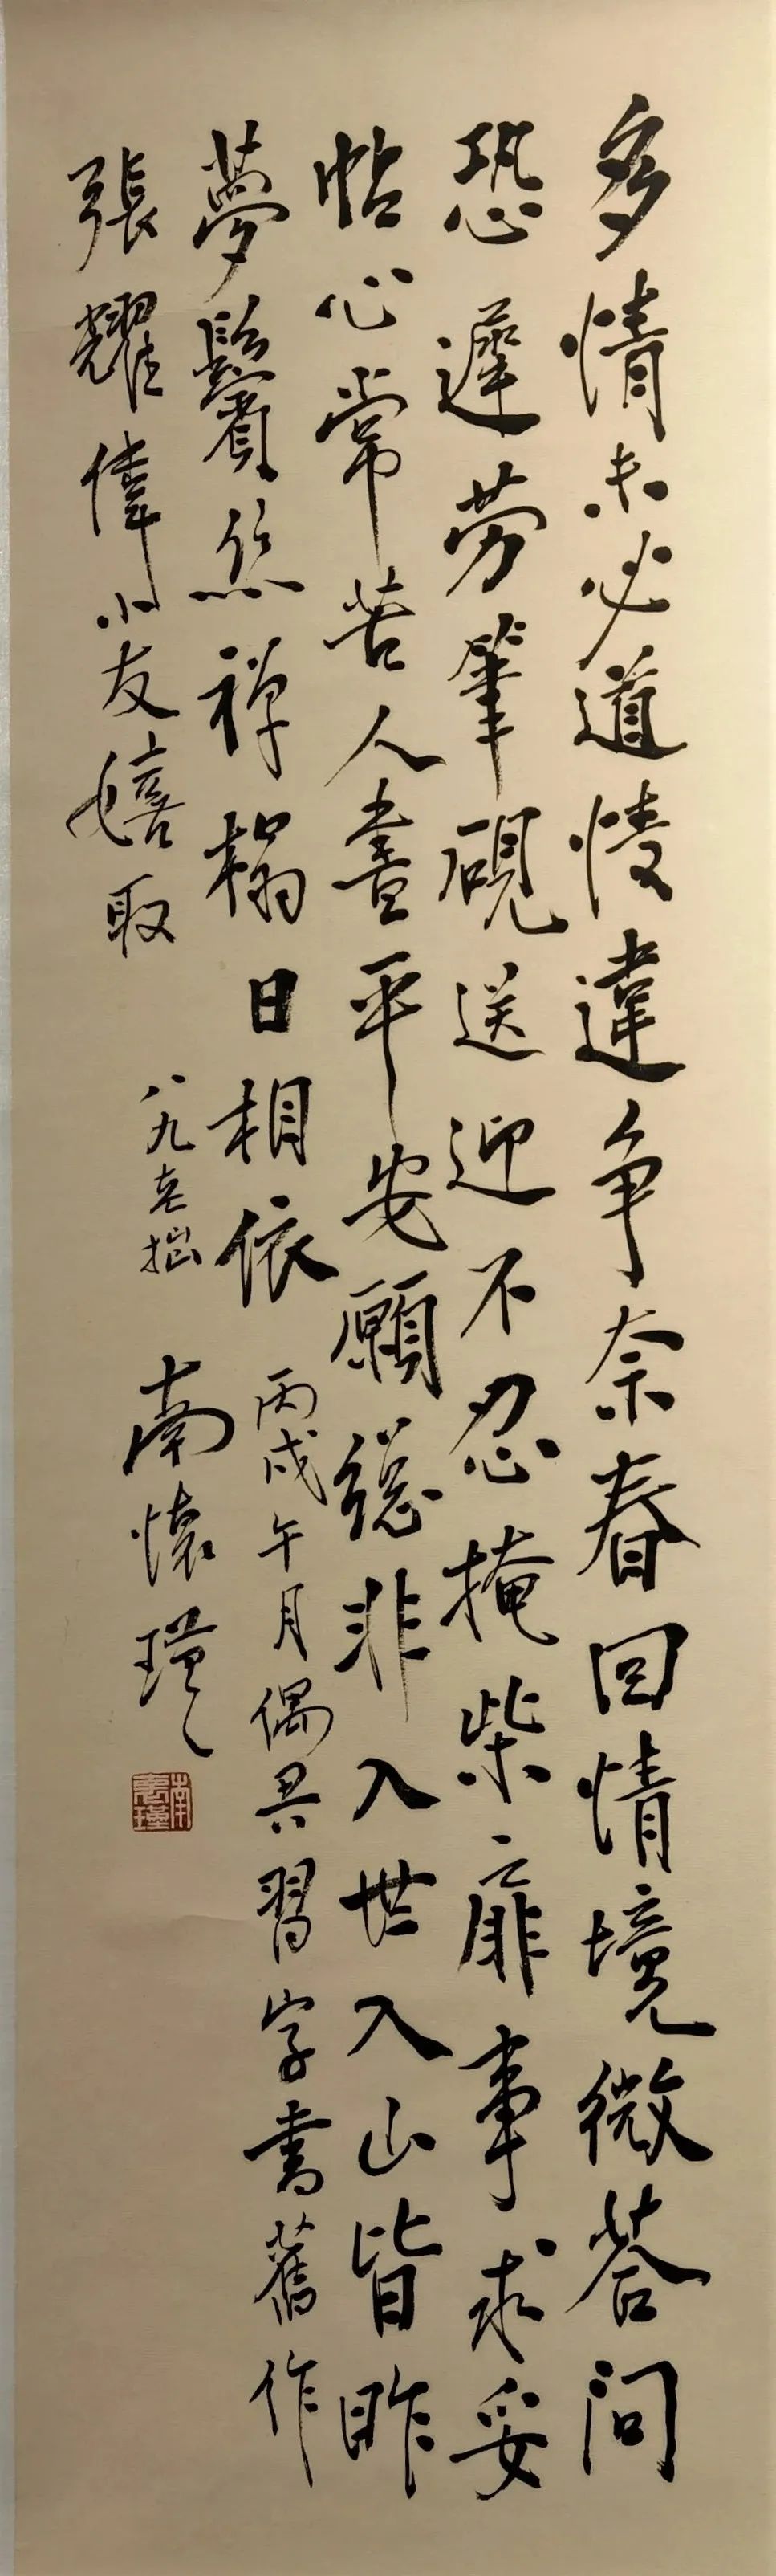 多情未必道違爭奈春回情境微答問
恐遲勞筆硯送迎不忍掩柴扉事求妥
帖心常苦人盡平安願總非入世入山皆昨
夢鬢絲禪榻日相依 丙戌午月偶習字書舊作
張耀偉小友嬉取 八九老拙 南懷瑾
南懷瑾